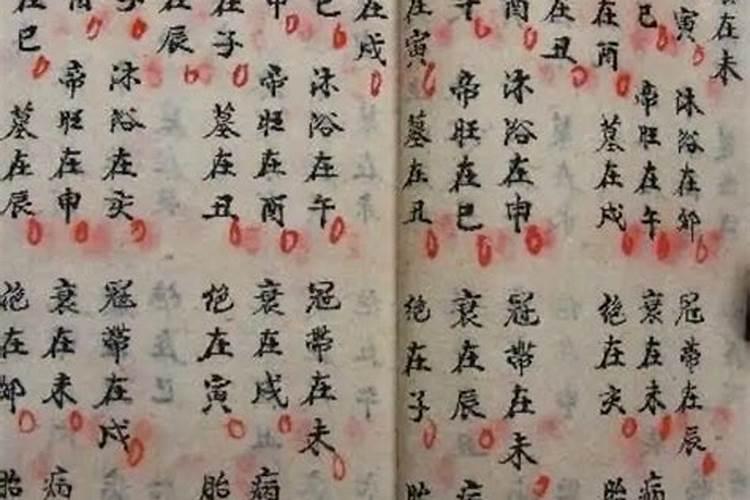 在未
寅
巳
在酉
在丑
酉
在寅
沐浴在卯
帝旺在午
墓在戌
沐浴在申
帝旺在巳
墓在丑
冠帶在辰
衰在未
絶在亥
冠帶在未
衰在辰
絶在子
病
胎
病
胎
在戌
巳
申
在子
在辰
子
在巳
沐浴在午
帝旺在酉
墓在丑
沐浴在亥
帝旺在申
墓在辰
冠帶在未
衰在戌
絶在寅
冠帶在戌
衰在未
絶在卯
病
胎
病
胎